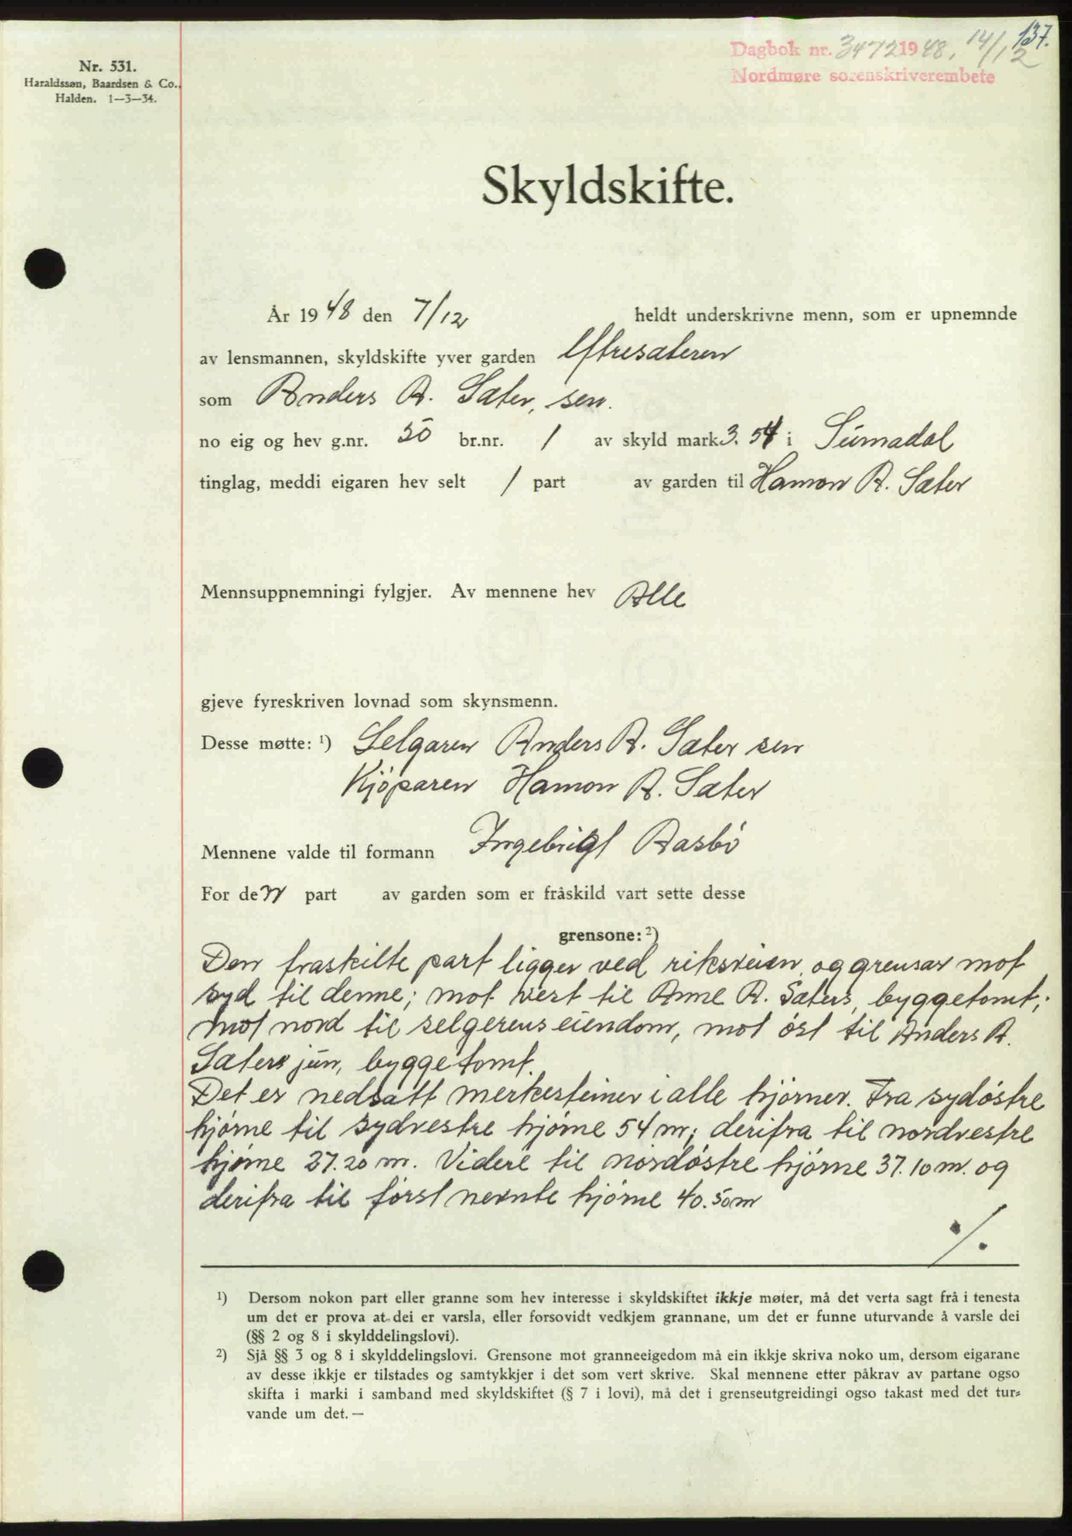 137.
Dagbok nr. 3472 1948, 14/12
Nordmøre sorenskriverembete
Nr. 531.
Haraldssøn, Baardsen & Co.,
Halden. 1—3—34.
Skyldskifte.
År 1948 den 7/12 heldt underskrivne menn, som er upnemnde
av lensmannen, skyldskifte yver garden Øfstesæteren
som Anders A. Sæter, sen.
no eig og hev g.nr. 50 br.nr. 1 av skyld mark 3.54 i Surnadal
tinglag, meddi eigaren hev selt 1 part av garden til Hamon A. Sæter
Mennsuppnemningi fylgjer. Av mennene hev Alle
gjeve fyreskriven lovnad som skynsmenn.
Desse møtte: ¹) Selgaren Anders A. Sæter sen
Kjöparen Hamon A. Sæter
Mennene valde til formann Ingebrigt Aasbö
For den part av garden som er fråskild vart sette desse
grensone: ²)
Den fraskilte part ligger ved riksveien, og grensar mot
syd til denne; mot vest til Anne A. Sæters, byggetomt;
mot nord til selgerens eiendom, mot öst til Anders A.
Sæters jun, byggetomt.
Det er nedsatt merkesteiner i alle hjörner. Fra sydöstre
hjörne til sydvestre hjörne 54 m; derifra til nordvestre
hjørne 27.20 m. Videre til nordöstre hjörne 37.10 m. og
derifra til först nevnte hjörne 40.50 m
./.
¹) Dersom nokon part eller granne som hev interesse i skyldskiftet ikkje møter, må det verta sagt frå i tenesta
um det er prova at dei er varsla, eller forsovidt vedkjem grannane, um det er funne uturvande å varsle dei
(§§ 2 og 8 i skylddelingslovi).
²) Sjå §§ 3 og 8 i skylddelingslovi. Grensone mot granneeigedom må ein ikkje skriva noko um, dersom eigarane
av desse ikkje er tilstades og samtykkjer i det som vert skrive. Skal mennene etter påkrav av partane ogso
skifta i marki i samband med skyldskiftet (§ 7 i lovi), må det i grenseutgreidingi ogso takast med det tur-
vande um det. —